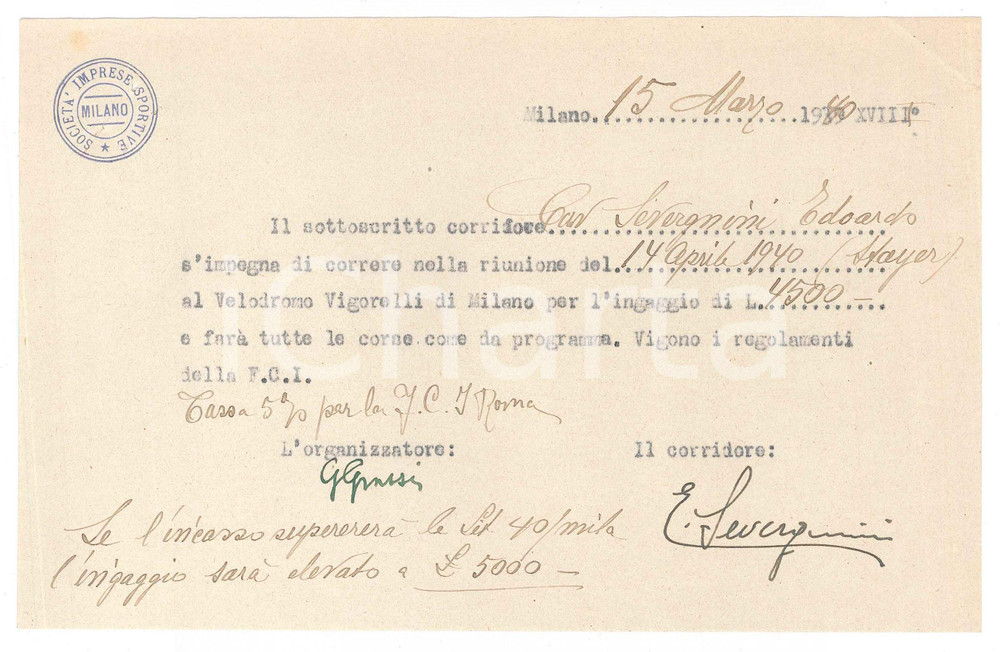 SOCIETA' IMPRESE SPORTIVE
MILANO
Milano. 15 Marzo 1940 XVIII°
Il sottoscritto corridore Cav Severgnini Edoardo
s'impegna di correre nella riunione del 14 Aprile 1940 (Stayer)
al Velodromo Vigorelli di Milano per l'ingaggio di L. 4500 —
e farà tutte le corse come da programma. Vigono i regolamenti
della F.C.I.
Tassa 5% per la F.C.I Roma
L'organizzatore: Il corridore:
E. Severgnini
Se l'incasso supererà le Lit 40/mila
l'ingaggio sarà elevato a £ 5000 —
iCharta